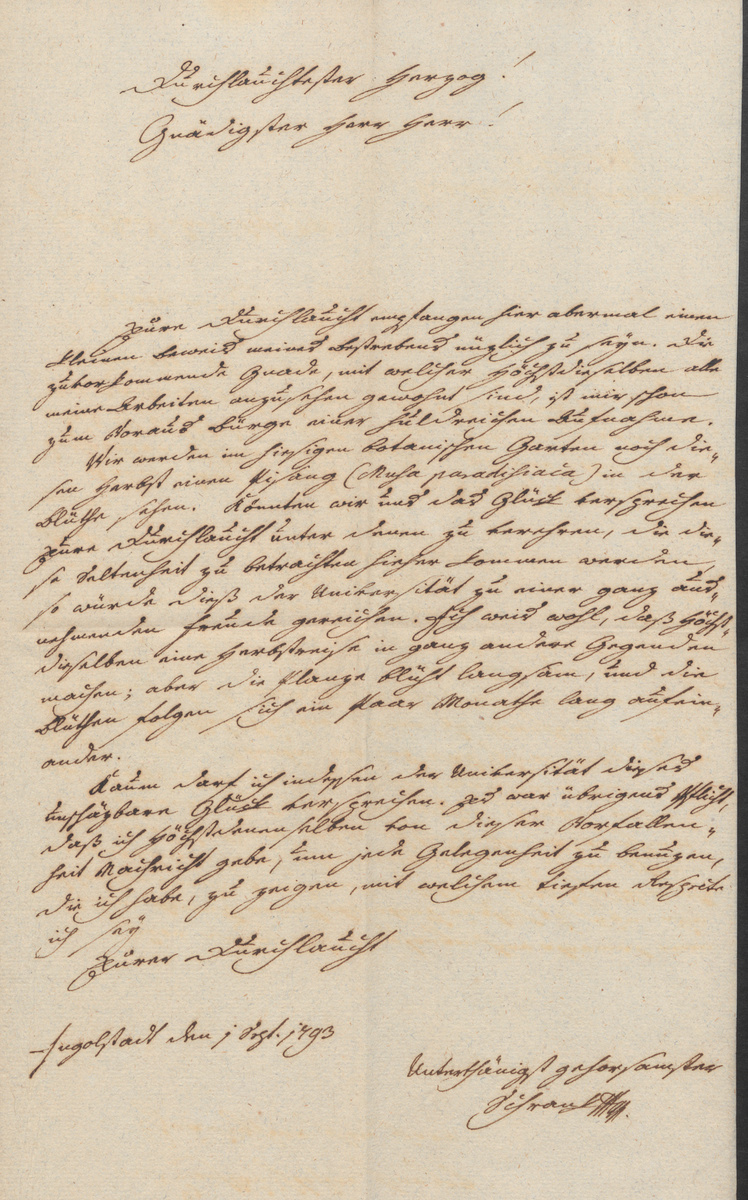 Durchlauchtester Herzog!
Gnädigster Herr Herr!
Eure Durchlaucht empfangen hier abermal einen
kleinen beweis meines bestrebens nüzlich zu seyn. Die
zuvorkommende Gnade, mit welcher Höchstdieselben alle
meine Arbeiten anzusehen gewohnt sind, ist mir schon
zum Voraus Bürge einer huldreichen Aufnahme.
Wir werden im hiesigen botanischen Garten noch die-
sen Herbst einen Pisang (Musa paradisiaca) in der
Blüthe sehen. Könnten wir uns das Glück versprechen
Eure Durchlaucht unter denen zu verehren, die die-
se Seltenheit zu betrachten hieher kommen werden,
so würde dieß der Universität zu einer ganz aus-
nehmenden freude gereichen. Ich weis wohl, daß Höchst-
dieselben eine Herbstreise in ganz andere Gegenden
machen; aber die Planze blüht langsam, und die
Blüthen folgen sich ein Paar Monathe lang aufein-
ander.
Kaum darf ich indessen der Universität dieses
unschäzbare Glück versprechen. Es war übrigens Pflicht,
daß ich Höchstdenenselben von dieser Vorfallen-
heit Nachricht gebe, um jede Gelegenheit zu benuzen,
die ich habe, zu zeigen, mit welchem tiefen Respecte
ich sey
Eurer Durchlaucht
Ingolstadt den 1 Sept. 1793
Unterthänigst gehorsamster
Schrank